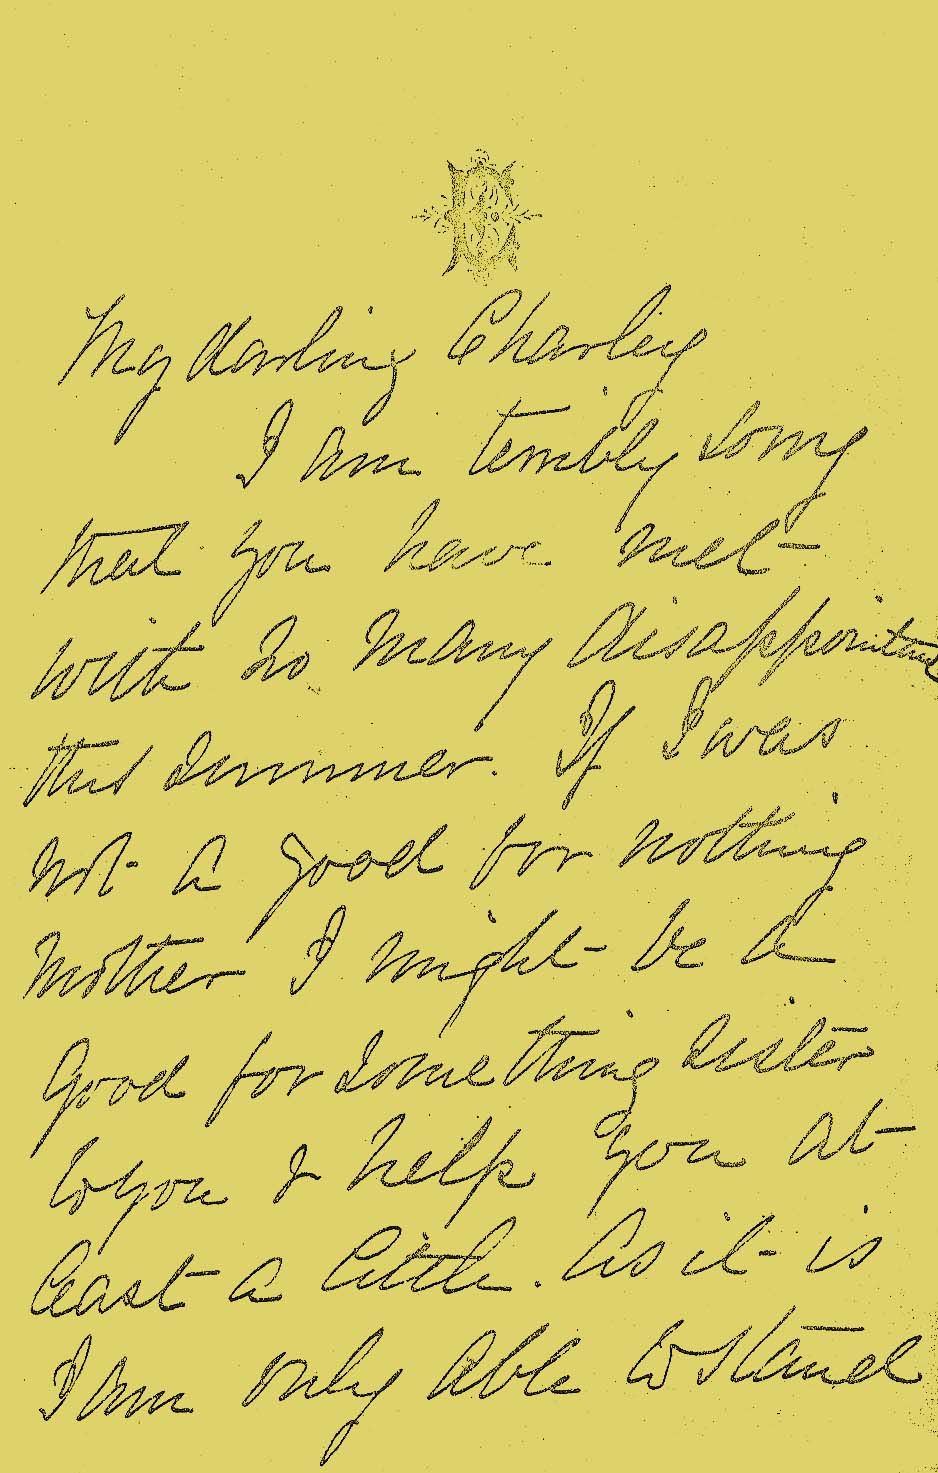 My darling Charley
I am terribly sorry
that you have met
with so many disappointments
this summer. If I was
not a good for nothing
Mother I might be a
good for something sister
to you & help you at
least a little. As it is
I am only able to stand